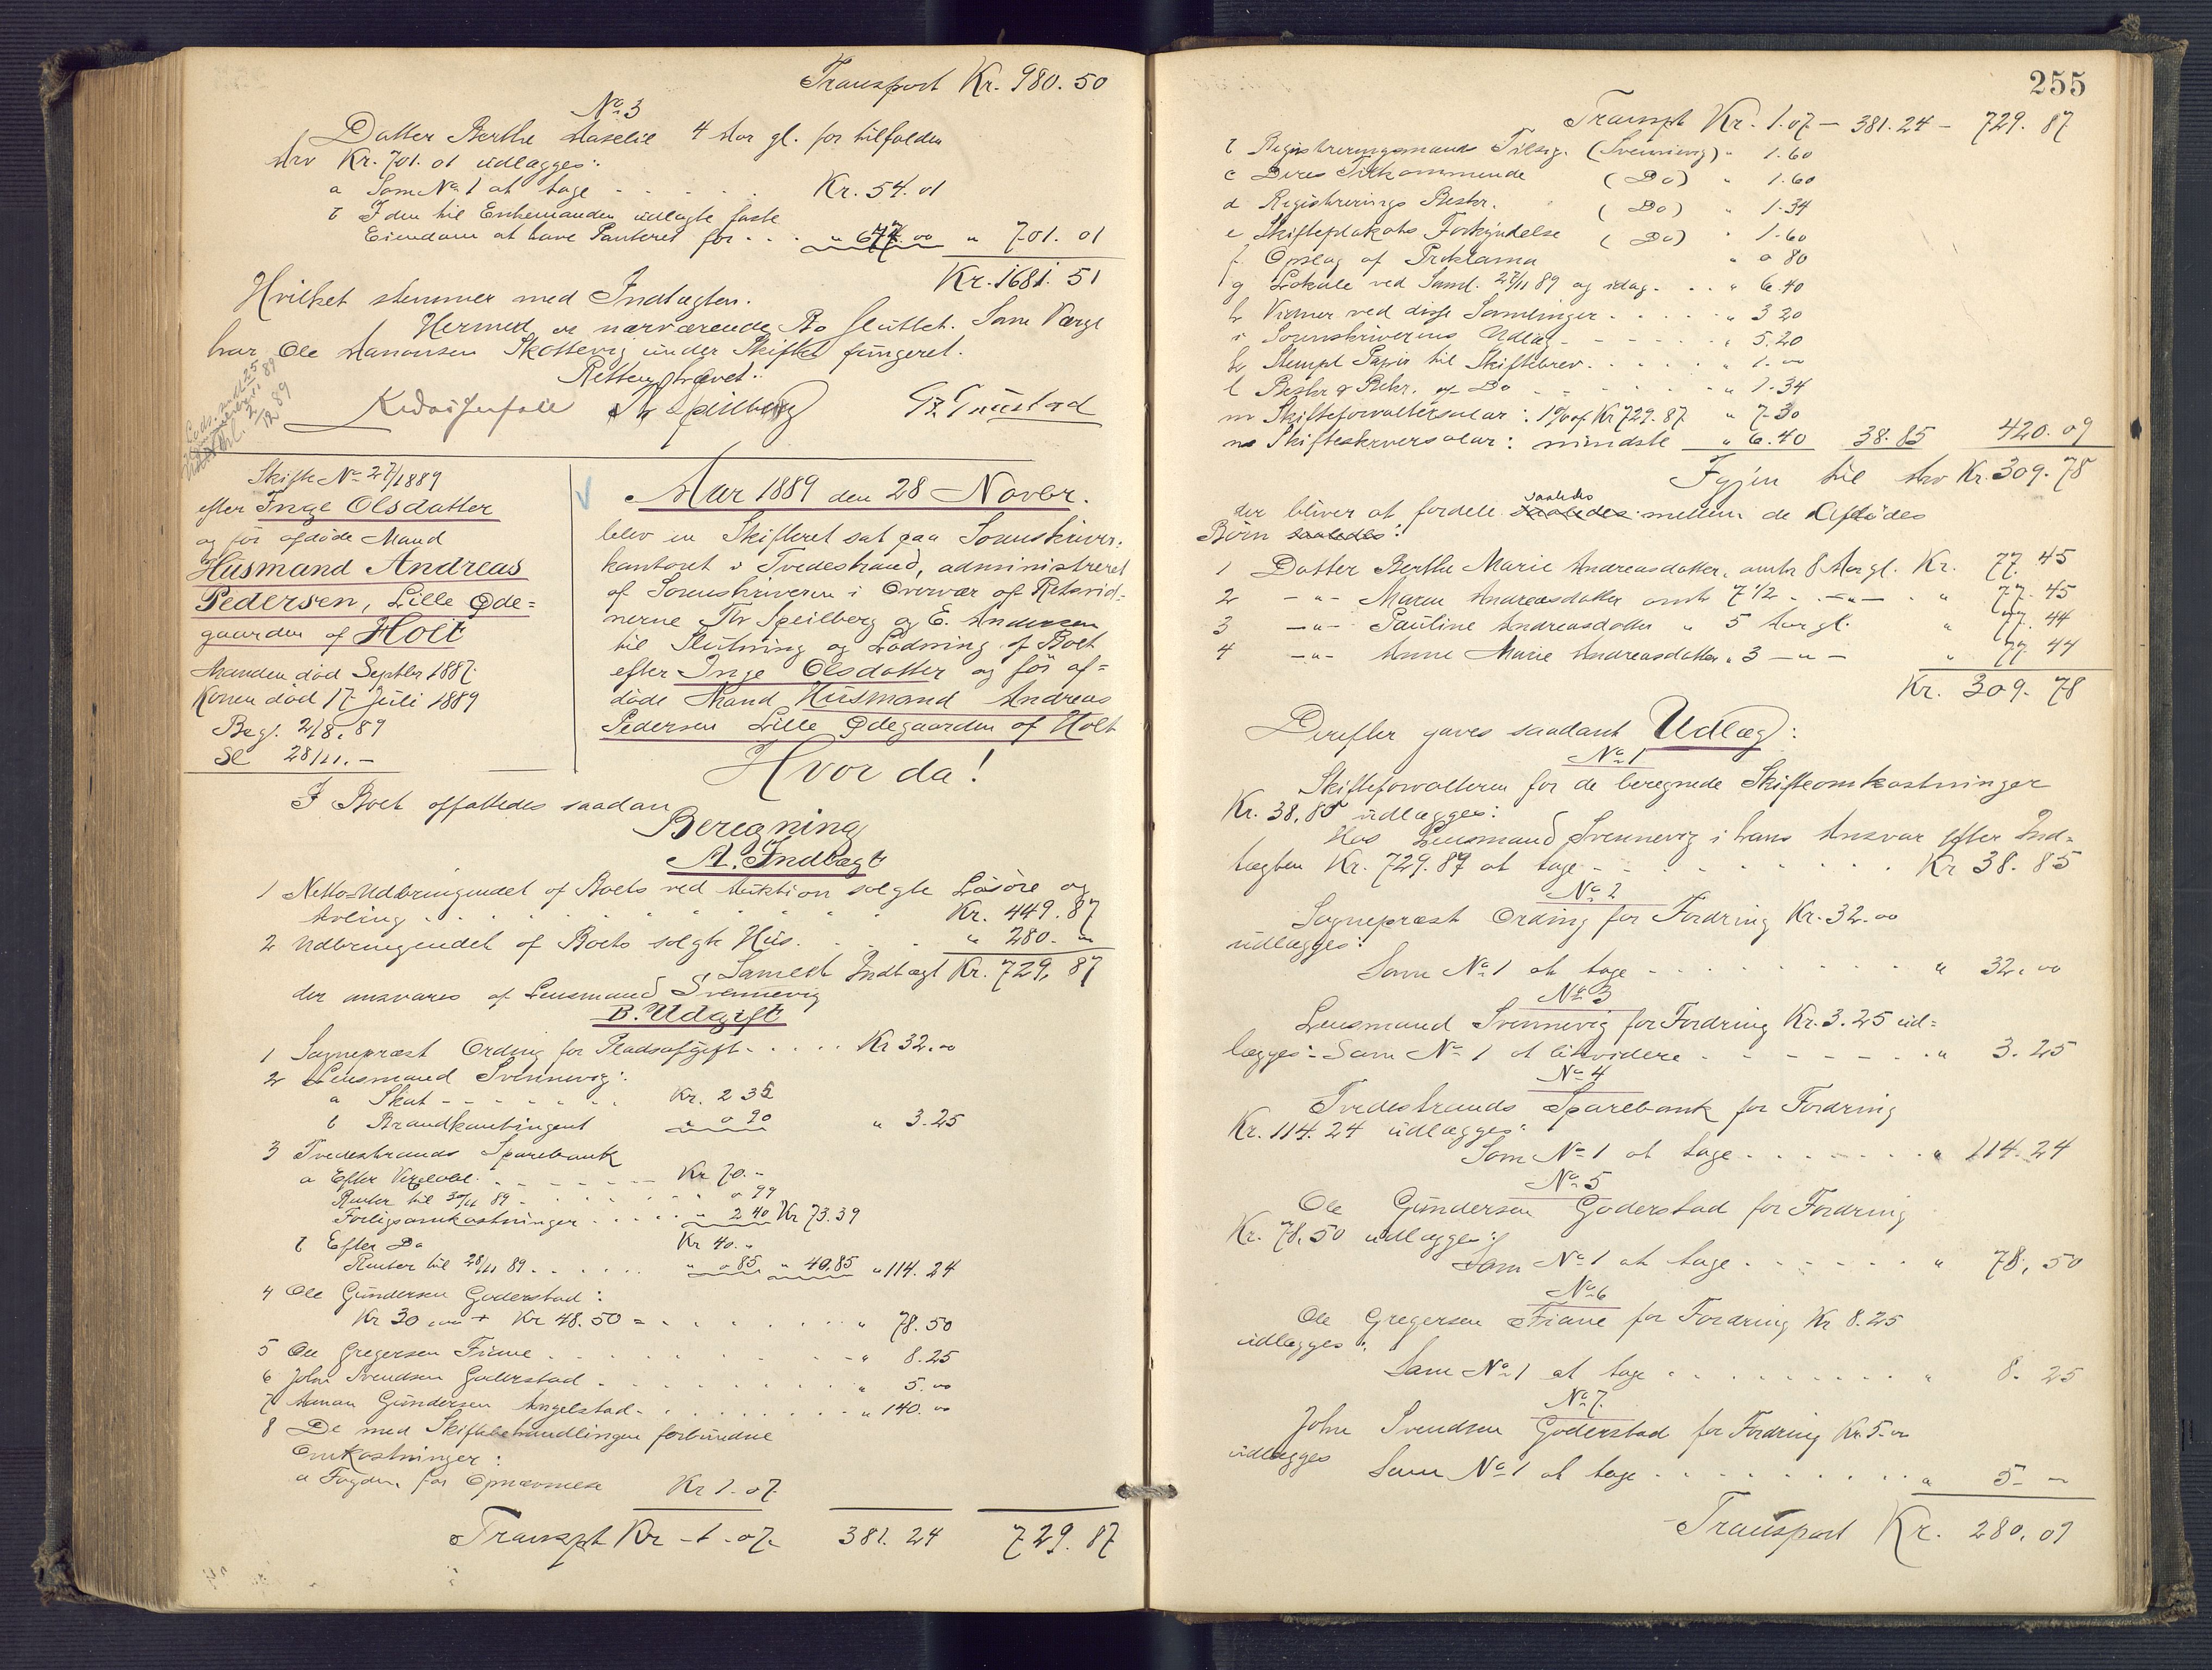 Transport Kr. 980.50
No 3
Datter Berthe Maselie 4 Aar gl. for tilfalden
Arv Kr. 701.01 udlægges:
a Som No 1 at tage - - - - Kr. 54.01
b I den til Enkemanden udlagte faste
Eiendom at have Panteret for . . . " 647.00 " 701.01
Kr. 1681.51
Hvilket stemmer med Indtægten.
Hermed er nærværende Bo sluttet. Som Værge
har Ole Aanonsen Skottevig under Skiftet fungeret.
Retten hævet:
Th Speilberg
G. Grustad
Skifte No 27/1889
efter Inge Olsdatter
og før afdøde Mand
Husmand Andreas
Pedersen, Lille Øde=
gaarden af Holt
Manden død Septbr 1887.
Konen død 17 Juli 1889
Beg. 2/8. 89
Sl 28/11. —
Aar 1889 den 28 Novbr.
blev en Skifteret sat paa Sorenskriver-
kontoret i Tvedestrand, administreret
af Sorenskriveren i Overvær af Retsvid-
nerne Th Speilberg og E. Andersen
til Slutning og Lodning af Boet
efter Inge Olsdatter og før af=
døde Mand Husmand Andreas
Pedersen Lille Ødegaarden af Holt
Hvor da!
I Boet opsattedes saadan
Beregning
A. Indtægt
1 Netto-Udbringendet af Boets ved Auktion solgte Løsøre og
Avling . . . . . . . Kr. 449.87
2 Udbringendet af Boets solgte Hus. . . . " 280. "
Samlet Indtægt Kr. 729.87
der ansvares af Lensmand Svennevig
B. Udgift
1 Sognepræst Ording for Pladsafgift . . . . Kr 32.00
2 Lensmand Svennevig:
a Skat - - - - - - Kr. 2 35
b Brandkontingent " 0 90 " 3.25
3 Tvedestrands Sparebank
a Efter Vexelobl. - - - - - Kr 70.-
Renter til 30/11 89 - . . . . " 0 99
Forligsomkostninger . . . . " 2 40 Kr 73.39
b Efter Do Kr 40.-
Renter til 28/11 89 . . . . . " 0 85 " 40.85 " 114.24
4 Ole Gundersen Goderstad:
Kr 30 + Kr 48.50 = . . . . . " 78.50
5 Ole Gregersen Fiane . . . . . . . - " 8.25
6 John Svendsen Goderstad - . . . . . . " 5.00
7 Aanon Gundersen Angelstad - . . . . . . - " 140.00
8 De med Skiftebehandlingen forbundne
Omkostninger:
a Fogden for Opnævnelse Kr 1.07
Transpt Kr - 1.07 381.24 729.87
255
Transpt Kr. 1.07 — 381.24 — 729.87
b Registreringsmænds Tilsig. (Svennevig) " 1.60
c Deres Tilkommende (Do) " 1.60
d Registrerings Beskr. (Do) " 1.34
e Skifteplakats Forkyndelse (Do) " 1.60
f. Opslag af Proklama " 0 80
g Lokale ved Saml. 27/11 89 og idag. . . " 6.40
h Vidner ved disse Samlinger . . . . . " 3 20
i Sorenskriverens Udlæg - - - - - " 5.20
k Stempl Papir til Skiftebrev. . . . . . " 1.00
l Beskr & Bekr. af Do - - - - - - " 1.34
m Skifteforvaltersalær: 1% af Kr 729.87 " 7.30
n Skifteskriversalær: mindste " 6.40 38.85 420.09
Igjen til Arv Kr. 309.78
saaledes
der bliver at fordele saaledes mellem de Afdødes
Børn saaledes:
1 Datter Berthe Marie Andreasdatter, omtr 8 Aar gl. Kr. 77.45
2 - " - Maren Andreasdatter omtr 7 1/2 - - " - . " 77.45
3 - " - Pauline Andreasdatter " 5 Aar gl. " 77.44
4 - " - Anne Marie Andreasdatter " 3 - " - " 77.44
Kr. 309.78
Derefter gaves saadant Udlæg:
No 1
Skifteforvalteren for de beregnede Skifteomkostninger
Kr. 38.85 udlægges:
Hos Lensmand Svennevig i hans Ansvar efter Ind-
tægten Kr. 729.87 at tage - . . . . . . . Kr 38.85
No 2
Sognepræst Ording for Fordring Kr. 32.00
udlægges:
Som No 1 at tage - . . . . . . . " 32.00
No 3
Lensmand Svennevig for Fordring Kr. 3.25 ud=
lægges: Som No 1 at likvidere . - - - - - . " 3.25
No 4
Tvedestrands Sparebank for Fordring
Kr. 114.24 udlægges:
Som No 1 at tage . . . . . . . " 114.24
No 5
Ole Gundersen Goderstad for Fordring
Kr. 78.50 udlægges:
Som No 1 at tage . . . . . . " 78.50
No 6
Ole Gregersen Fiane for Fordring Kr 8.25
udlægges:
Som No 1 at tage . . . . . . . . " 8.25
No 7.
John Svendsen Goderstad for Fordring Kr. 5.00
udlægges
Som No 1 at tage . . . . . . . . . " 5 -
Transport Kr. 280.09